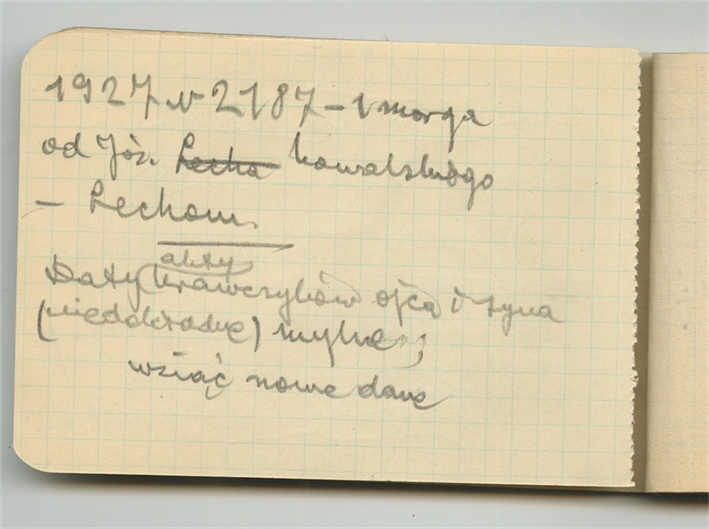 1927 N 2187 – 1 morga
od Józ. Lecha Kowalskiego
– Lechom.
akty
Daty Krawczyków ojca i syna
(niedokładne) mylne;
wziąć nowe dane